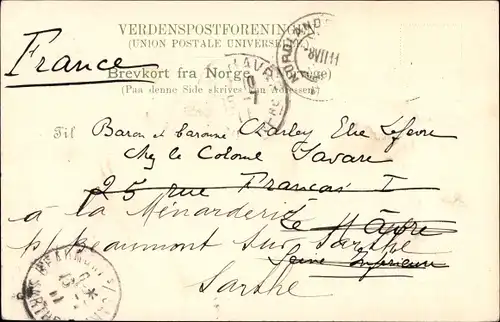 VERDENSPOSTFORENINGEN
(UNION POSTALE UNIVERSELLE)
France
Brevkort fra Norge (Norvège)
(Paa denne Side skrives kun Adressen)
Til Baron et baronne Charley Elie Lefevre
Chez le Colonel Savare
25 rue Francais I
à la Ménarderie
Le Hâvre
p/ Beaumont sur Sarthe
Seine Inférieure
Sarthe